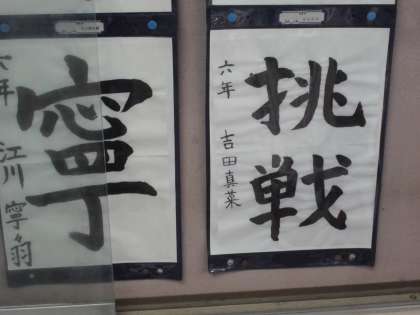 挑戦
六年 吉田真菜
寧
六年 江川寧々